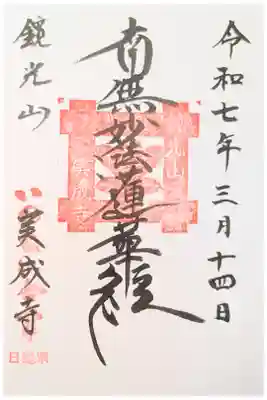 令和七年三月十四日
南無妙法蓮華経
鏡光山
美成寺